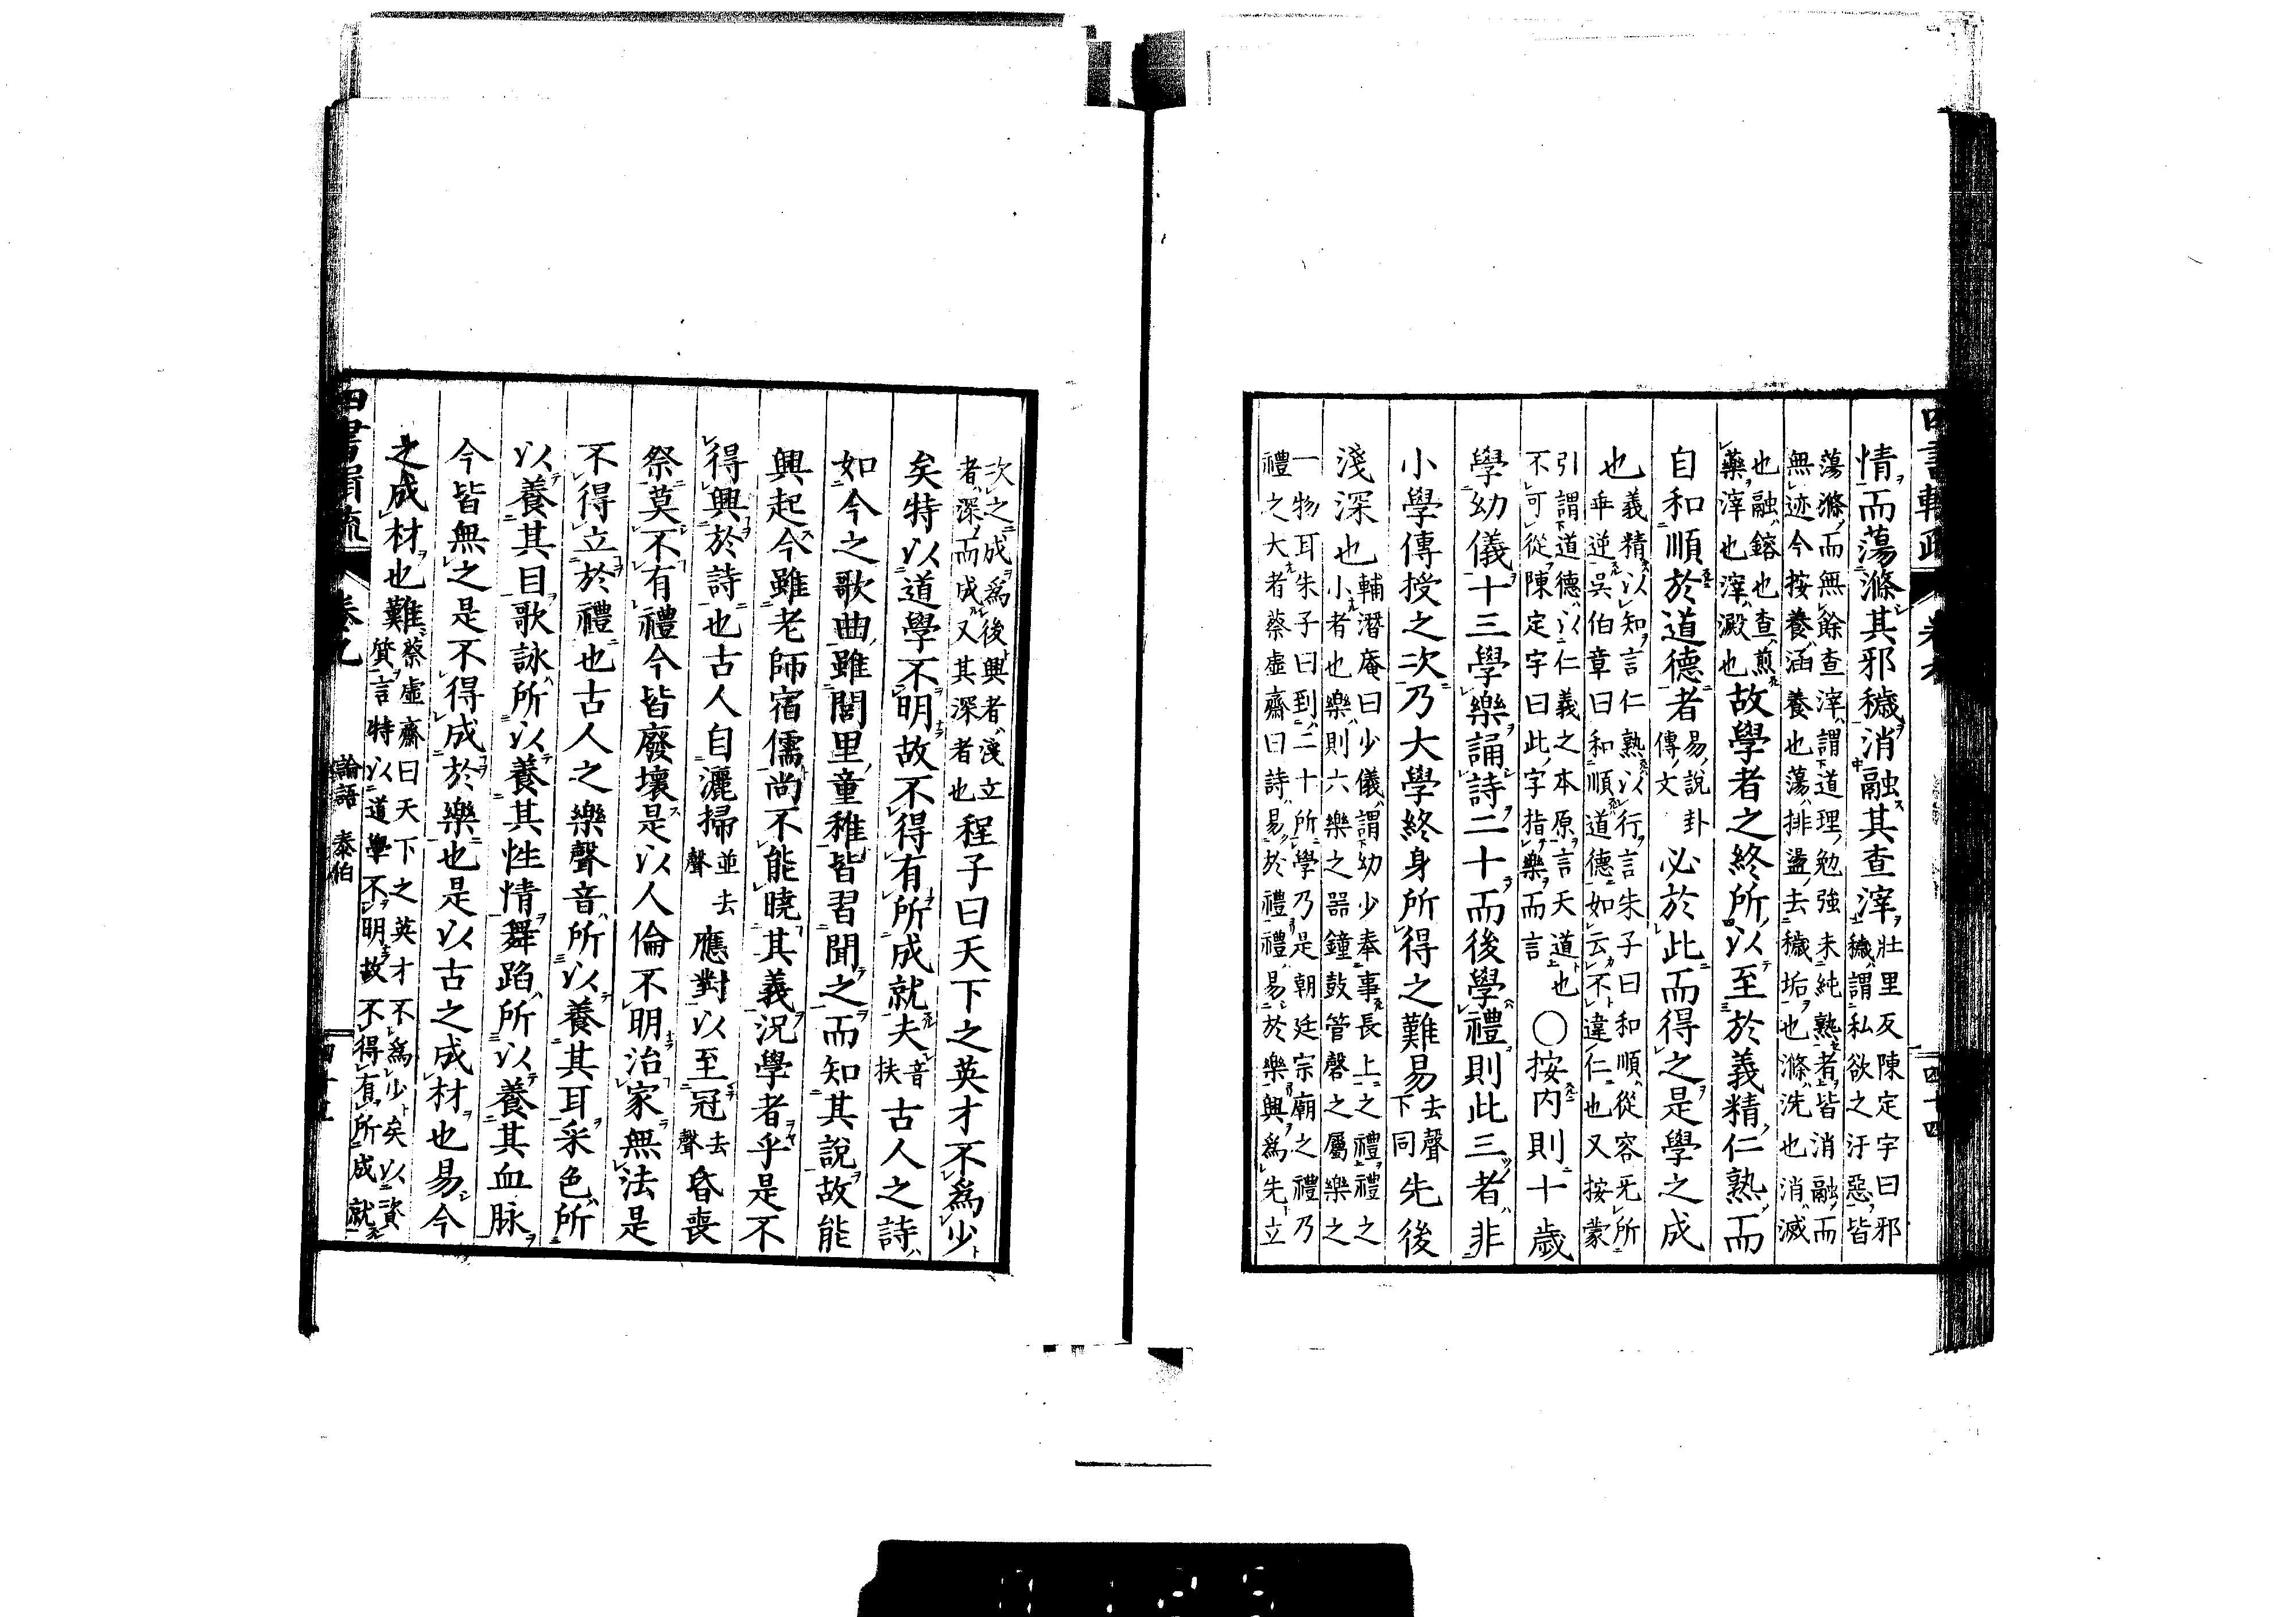 四書輯疏 卷九 四十四
情而蕩滌其邪穢消融其查滓壯里反陳定宇曰邪穢謂私欲之汙惡皆
蕩滌而無餘查滓謂道理勉強未純熟者皆消融而無迹今按養涵養也蕩排盪去穢垢也滌洗也消滅
也融鎔也查煎藥滓也滓澱也故學者之終所以至於義精仁熟而
自和順於道德者易說卦傳文必於此而得之是學之成
也義精以知言仁熟以行言朱子曰和順從容旡所乖逆吳伯章曰和順道德如云不違仁也又按蒙
引謂道德以仁義之本原言天道也不可從陳定宇曰此字指樂而言○按內則十歲
學幼儀十三學樂誦詩二十而後學禮則此三者非
小學傳授之次乃大學終身所得之難易去聲下同先後
淺深也輔潛庵曰少儀謂幼少奉事長上之禮禮之小者也樂則六樂之器鐘鼓管磬之屬樂之
一物耳朱子曰到二十所學乃是朝廷宗廟之禮乃禮之大者蔡虛齋曰詩易於禮禮易於樂興爲先立
次之成爲後興者淺立者深而成又其深者也程子曰天下之英才不爲少
矣特以道學不明故不得有所成就夫音扶古人之詩
如今之歌曲雖閭里童稚皆習聞之而知其說故能
興起今雖老師宿儒尚不能曉其義況學者乎是不
得興於詩也古人自灑掃並去聲應對以至冠去聲昏喪
祭莫不有禮今皆廢壞是以人倫不明治家無法是
不得立於禮也古人之樂聲音所以養其耳采色所
以養其目歌詠所以養其性情舞蹈所以養其血脉
今皆無之是不得成於樂也是以古之成材也易今
之成材也難蔡虛齋曰天下之英才不爲少矣以資質言特以道學不明故不得有所成就
四書輯疏 卷九 論語 泰伯 四十五